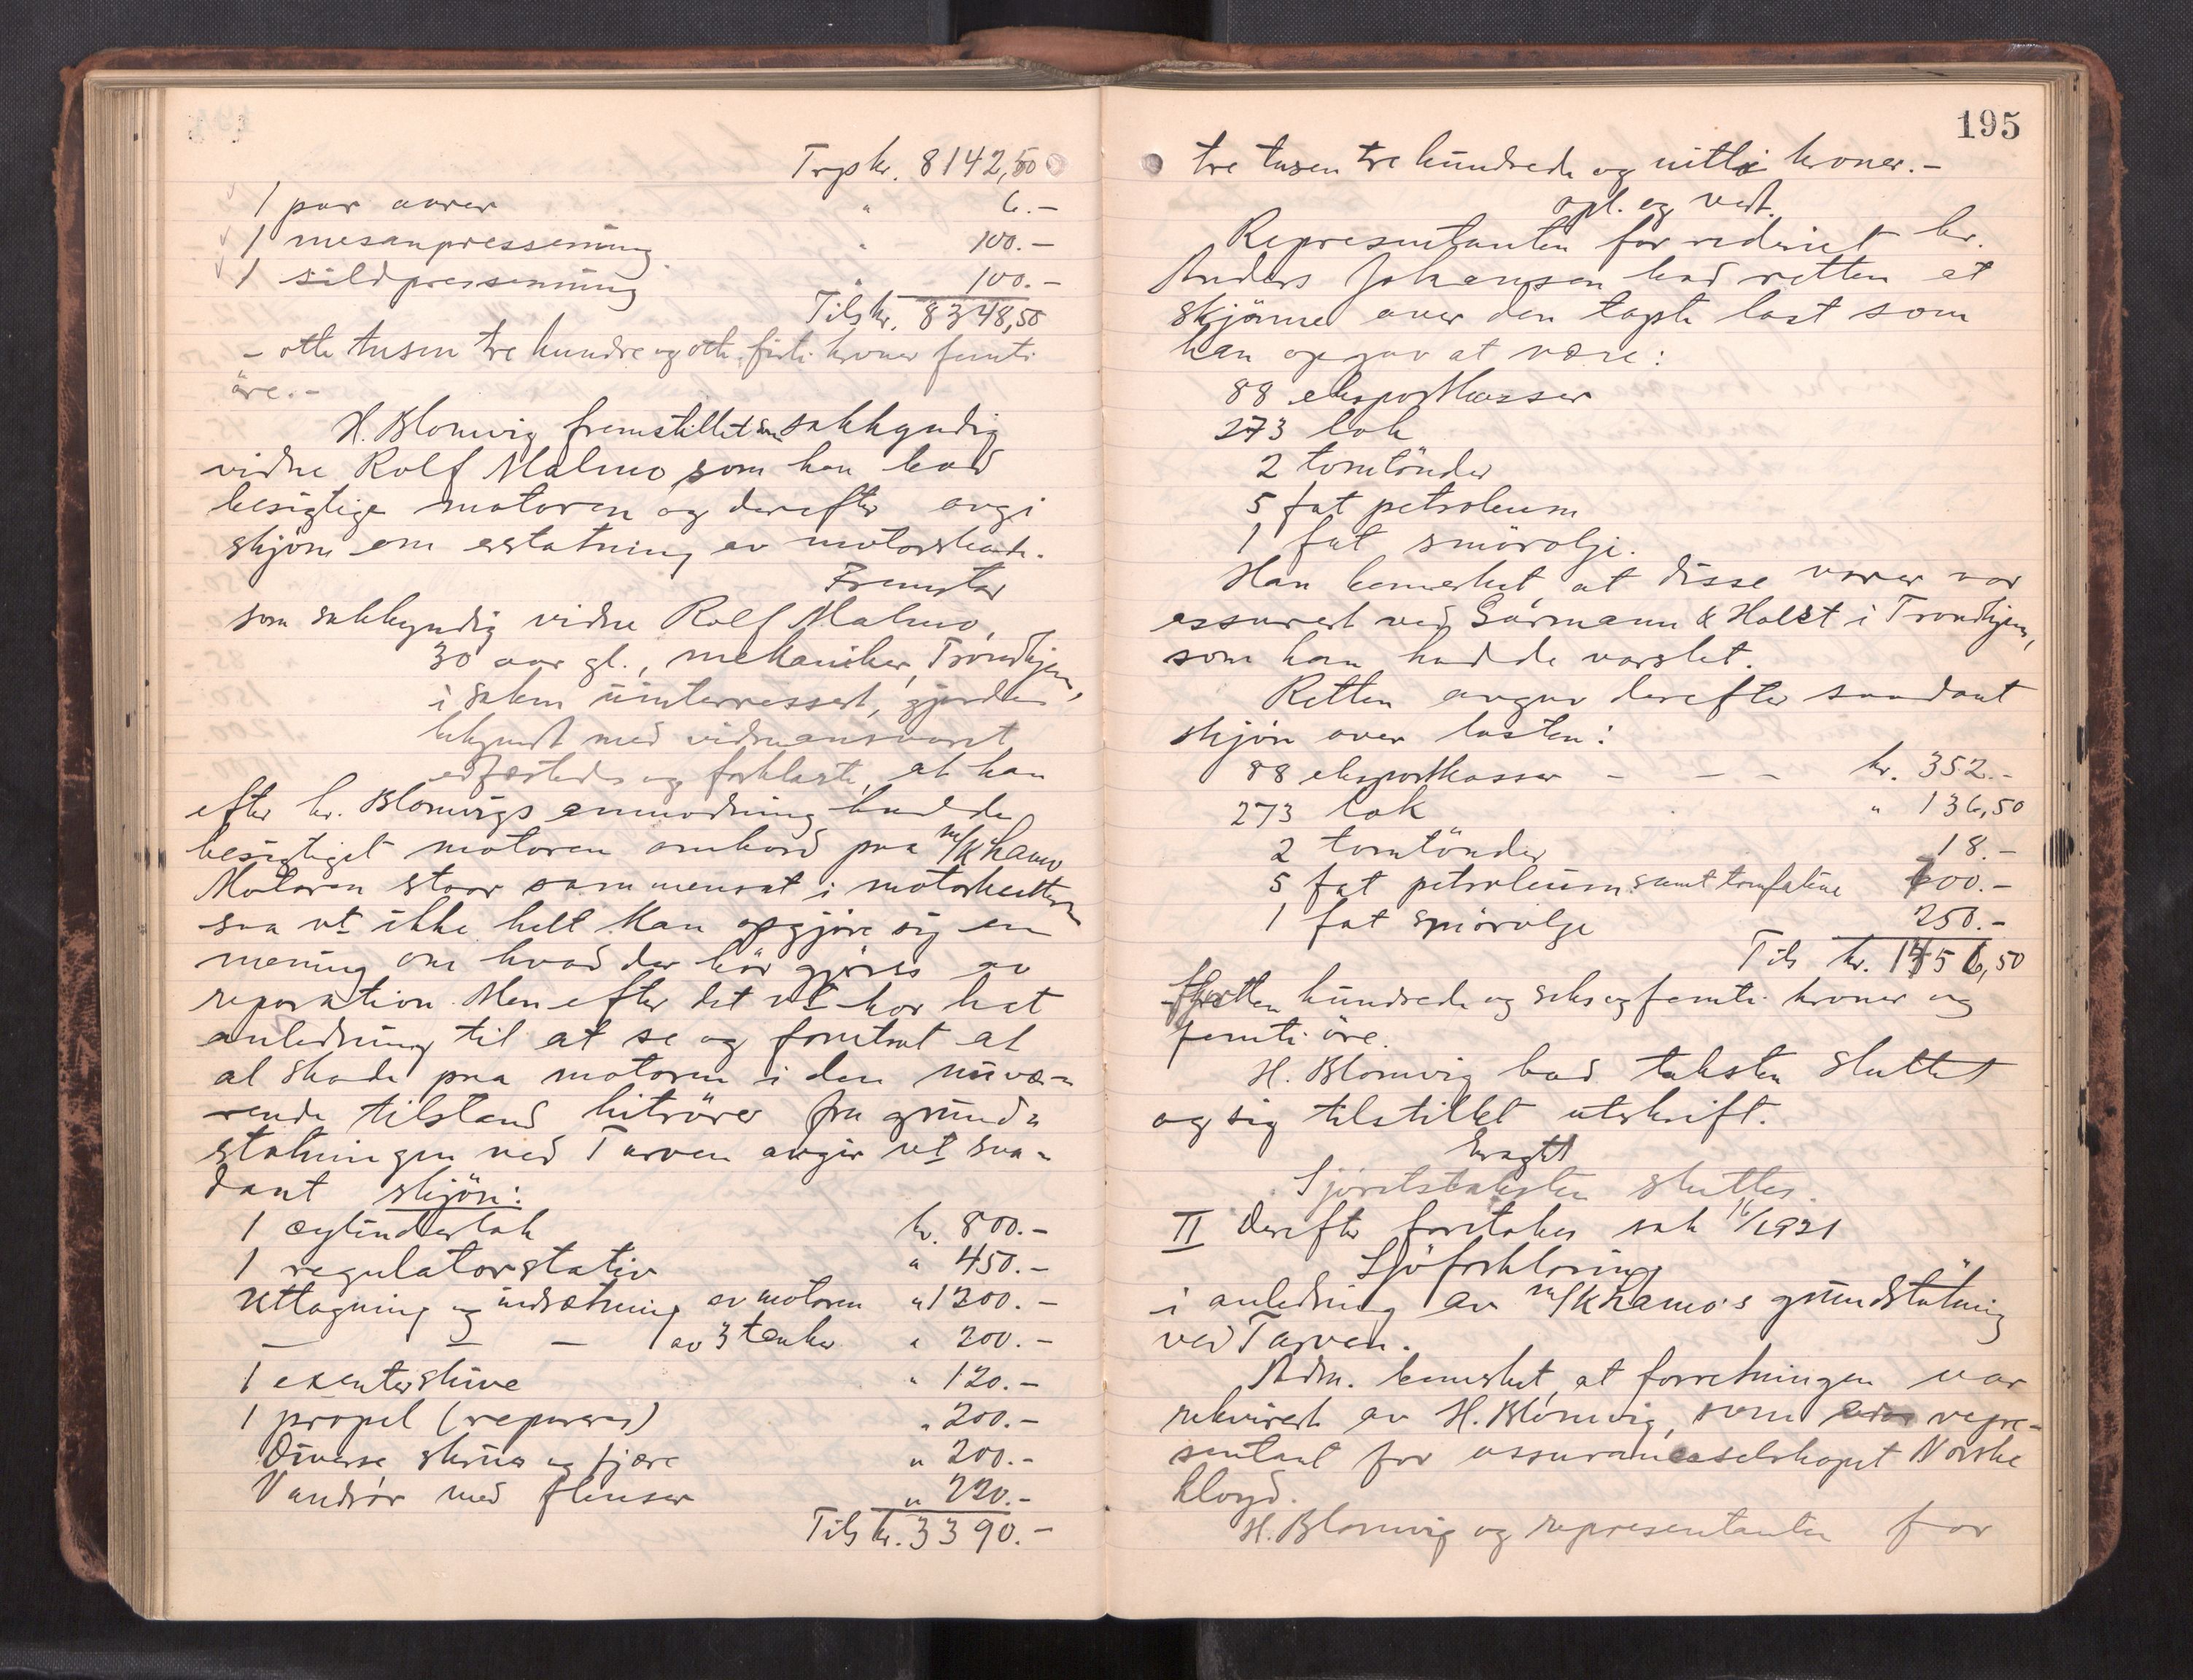 Trpkr. 8142,50
1 par aarer " 6.-
1 mesanpressening " 100.-
1 sildpressening " 100.-
Tils kr. 8348,50
- otte tusen tre hundre og otte firti kroner femti
öre.-
H. Blomvig fremstillet som sakkyndig
vidne Rolf Malmo som han bad
besigtige motoren og derefter avgi
skjön om erstatning av motorskade.
Fremstod
som sakkyndig vidne Rolf Malmo,
30 aar gl., mekaniker, Trondhjem,
i saken uinteressert, gjordes
bekjendt med vidneansvaret
edfæstedes og forklarte, at han
efter hr. Blomvigs anmodning hadde
besigtiget motoren ombord paa m/k Lamo
Motoren staar sammensat i motorhytten
saa vt ikke helt kan opgjöre sig en
mening om hvad der bör gjöres av
reparation. Men efter det vt har hat
anledning til at se og forutsat at
al skade paa motoren i den nuvæ-
rende tilstand hitrörer fra grund-
stötningen ved Tarven avgir vt saa-
dant skjön:
1 cylinderlok kr. 800.-
1 regulatorstativ " 450.-
Uttagning og indsætning av motoren " 1200.-
— — — av 3 tanker " 200.-
1 exenterskive " 120.-
1 propel (repareres) " 200.-
Diverse skruer og fjære " 200.-
Vandrör med flenser " 220.-
Tils kr. 3390.-
195
tre tusen tre hundrede og nitti kroner.-
opl. og vedt.
Representanten for rederiet hr.
Anders Johansen bad retten at
skjönne over den tapte last som
han opgav at være:
88 eksportkasser
273 lok
2 tomtönder
5 fat petroleum
1 fat smörolje.
Han bemerket, at disse varer var
assurert ved Garmann & Holst i Trondhjem,
som han hadde varslet.
Retten avgav derefter saadant
skjön over lasten:
88 eksportkasser - - - kr. 352.-
273 lok " 136,50
2 tomtönder 18.-
5 fat petroleum samt tomfatene 700.-
1 fat smörolje 250.-
Tils kr. 1456,50
-fjorten hundrede og seks og femti kroner og
femti öre.
H. Blomvig bad taksten sluttet
og sig tilstillet utskrift.
Eragtet
Sjöretstaksten sluttes.
II Derefter foretokes sak 16/1921
Sjöforklaring
i anledning av m/k Lamo's grundstötning
ved Tarven.
Adm. bemerket, at forretningen var
rekvirert av H. Blomvig, som repre-
sentant for assuranceselskapet Norske
Lloyd.
H. Blomvig og representanten for